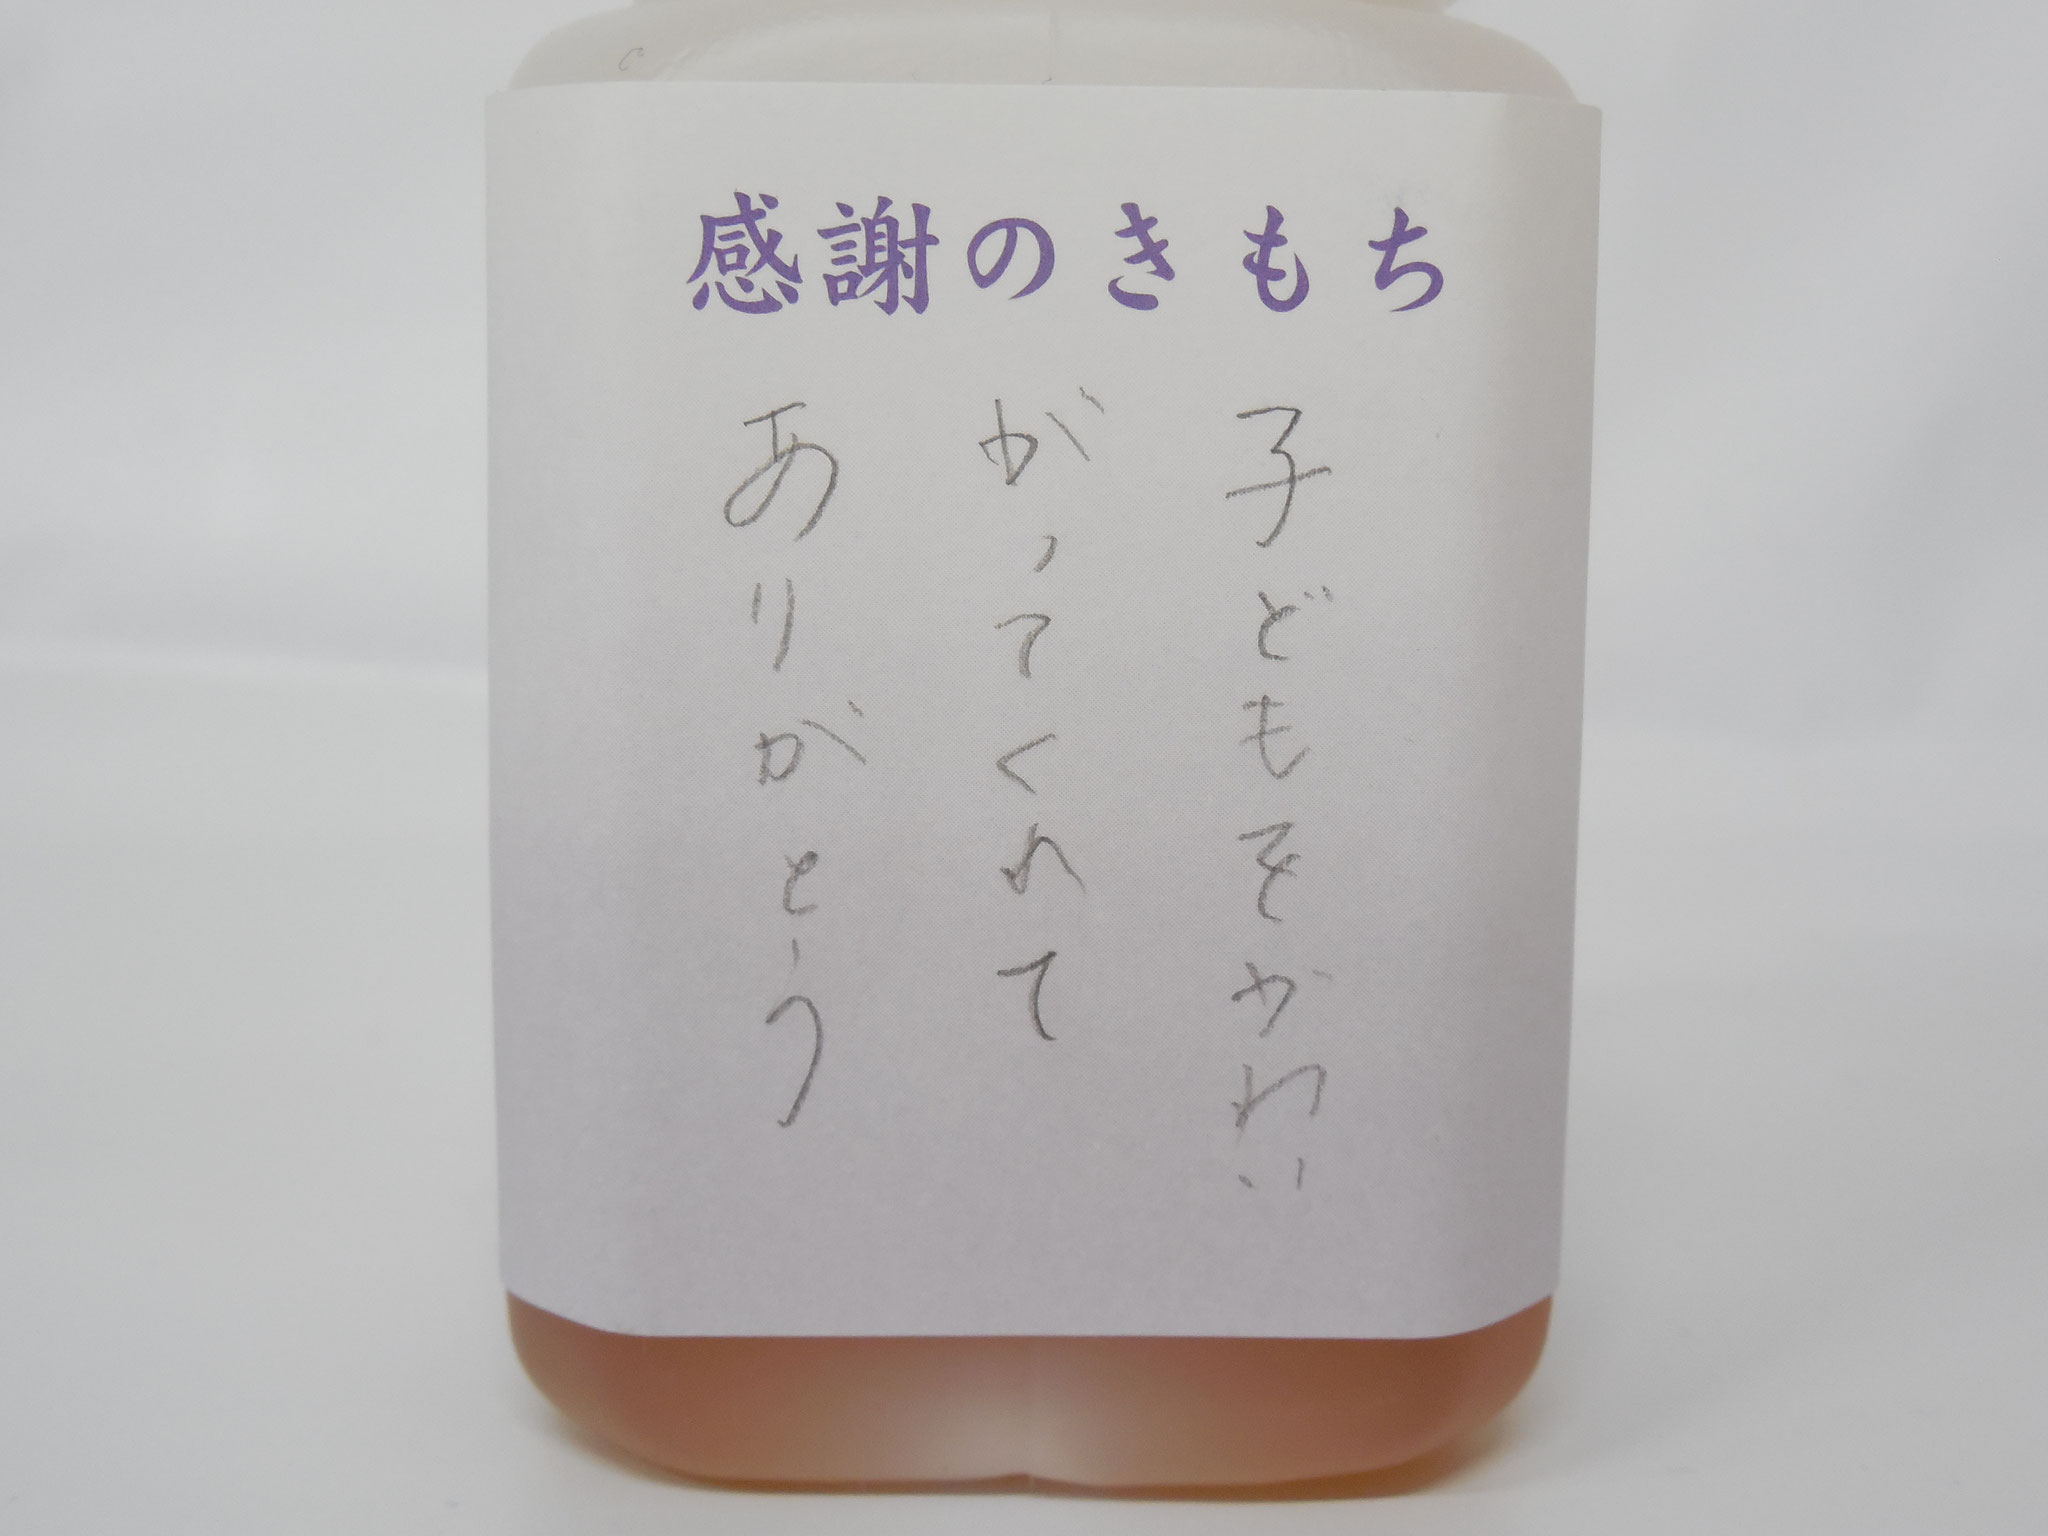 感謝のきもち
子どもをかわい
がってくれて
ありがとう